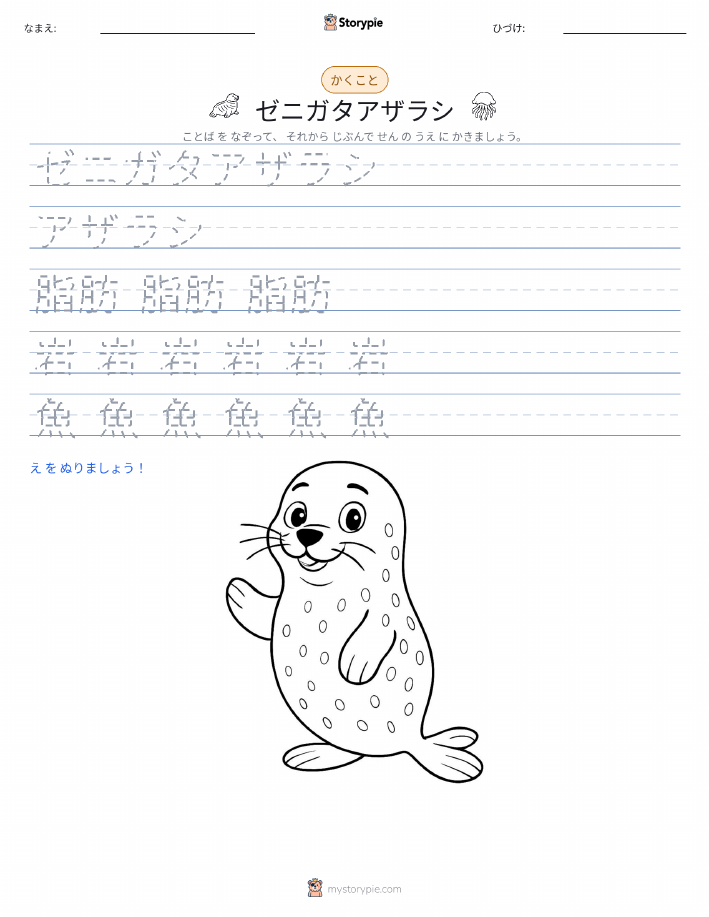 なまえ:
Storypie
ひづけ:
かくこと
ゼニガタアザラシ
ことば を なぞって、 それから じぶんで せん の うえ に かきましょう。
ゼニガタアザラシ
アザラシ
脂肪 脂肪 脂肪
岩 岩 岩 岩 岩 岩
魚 魚 魚 魚 魚 魚
え を ぬりましょう！
mystorypie.com